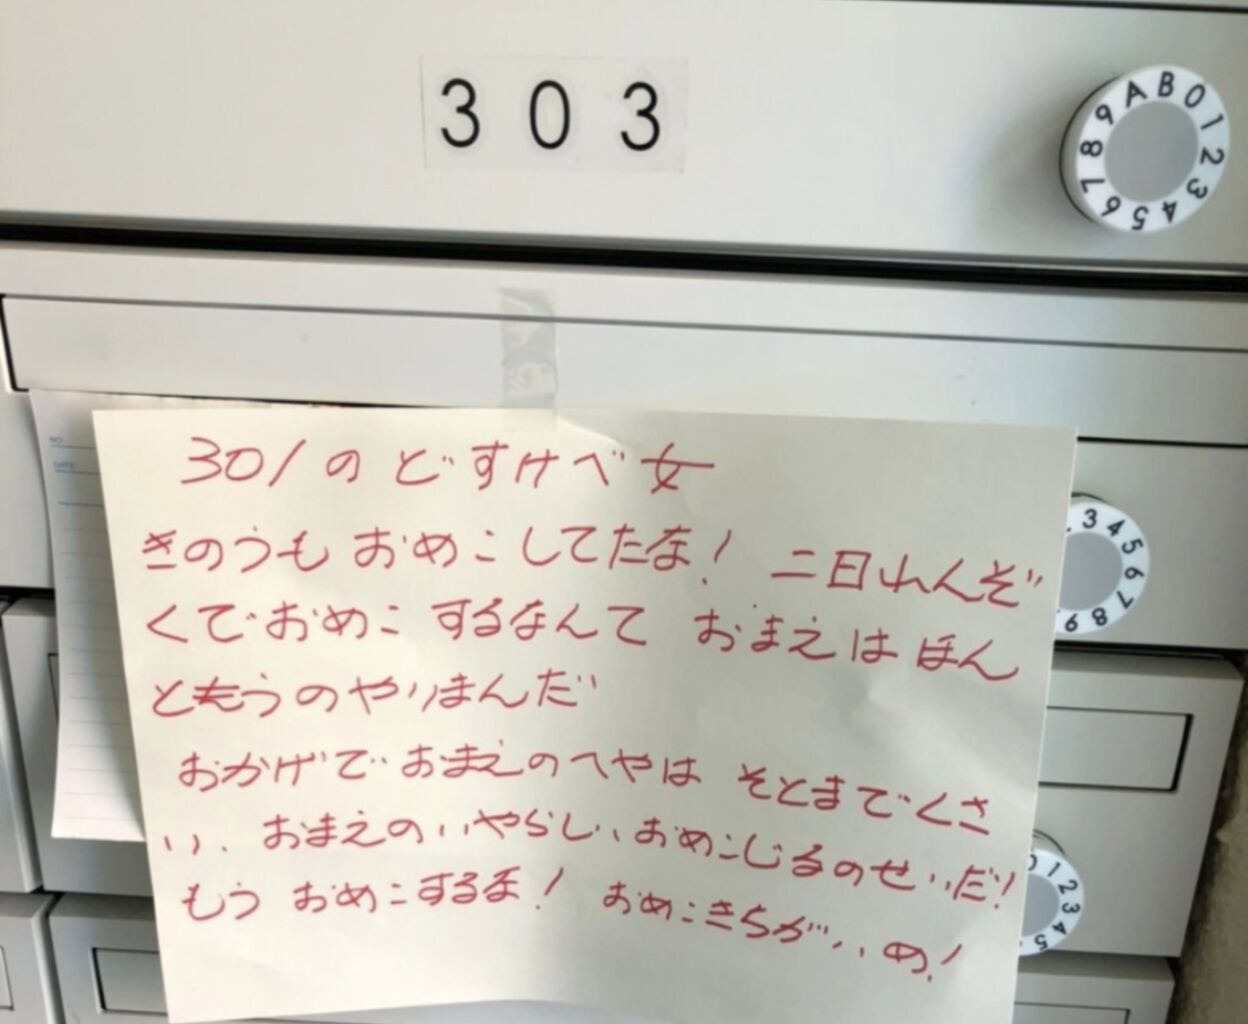 303
AB0123456789
301のどすけべ女
きのうもおめこしてたな! 二日れんぞ
くでおめこするなんて おまえはほん
とうのやりまんだ
おかげでおまえのへやはそとまでくさ
い、おまえのいやらしいおめこじるのせいだ!
もうおめこするな! おめこきちがいめ!
NO
DATE
3456789
012345